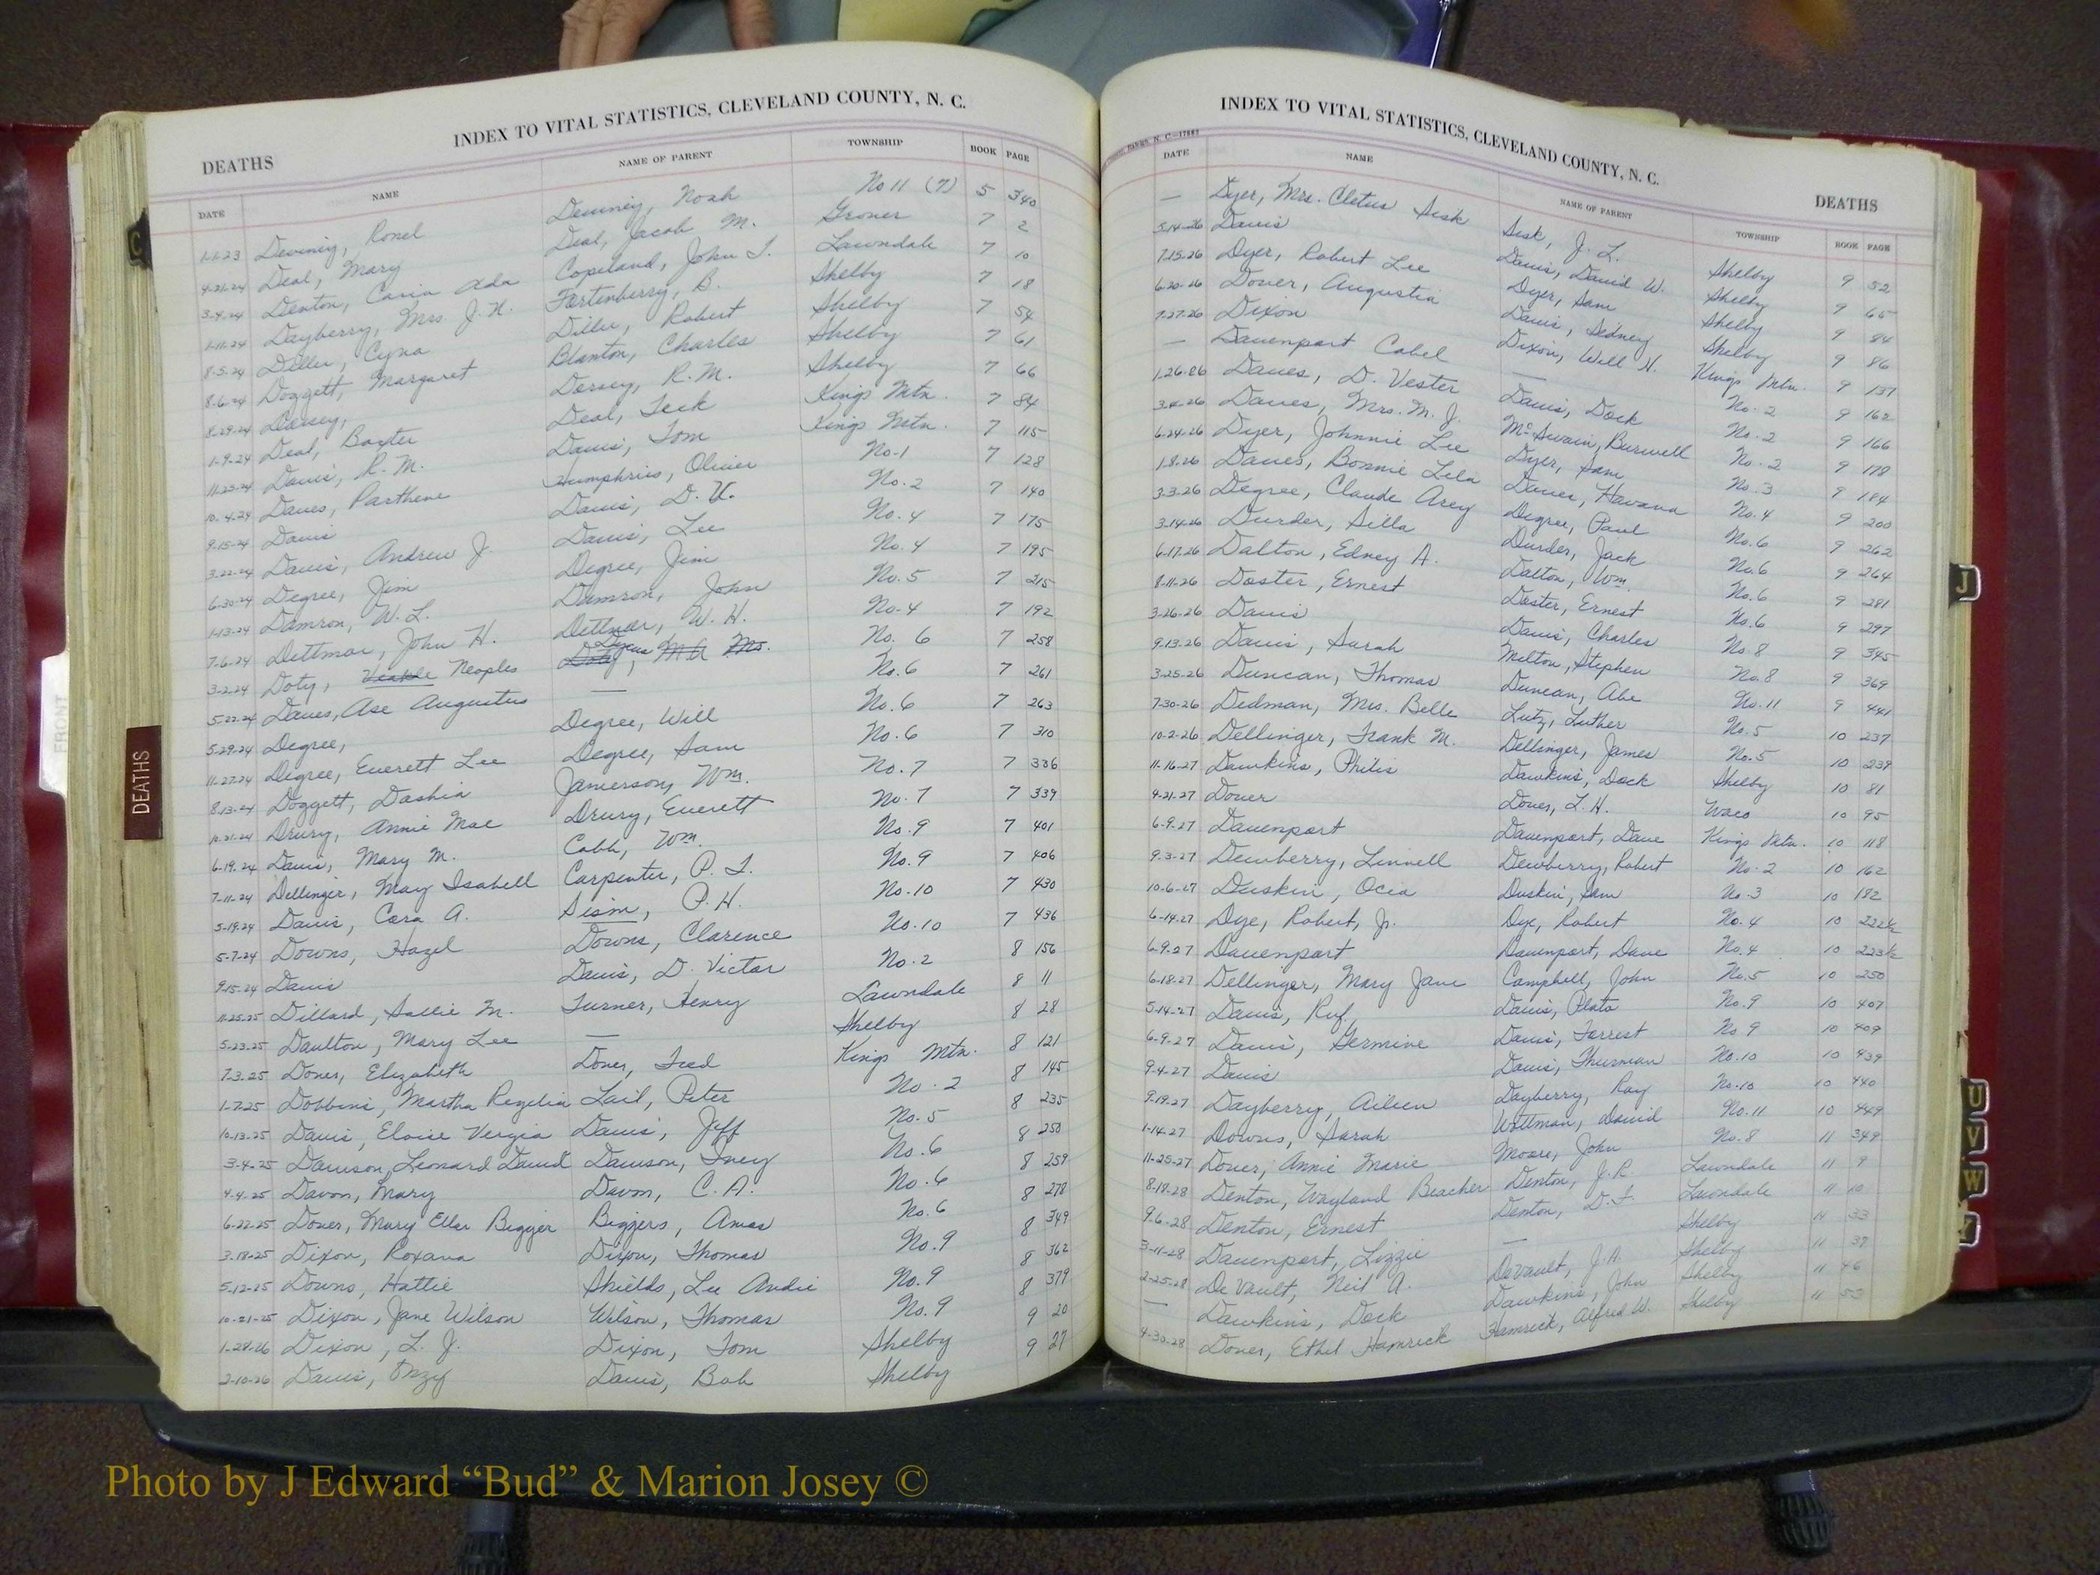 INDEX TO VITAL STATISTICS, CLEVELAND COUNTY, N. C.
DEATHS
DATE NAME NAME OF PARENT TOWNSHIP BOOK PAGE
1-1-23 Deviney, Ronel Deviney, Noah No 11 (7) 5 340
4-21-24 Deal, Mary Deal, Jacob M. Grover 7 2
3-4-24 Denton, Caria Ada Copeland, John T. Lawndale 7 10
1-11-24 Dayberry, Mrs. J. H. Fortenberry, B. Shelby 7 18
8-5-24 Diller, Cyna Diller, Robert Shelby 7 54
8-6-24 Doggett, Margaret Blanton, Charles Shelby 7 61
8-29-24 Dorsey, Dorsey, R. M. Shelby 7 66
1-9-24 Deal, Baxter Deal, Teck Kings Mtn. 7 84
11-23-24 Davis, R. M. Davis, Tom Kings Mtn. 7 115
10-4-24 Daves, Parthene Humphries, Oliver No-1 7 128
9-15-24 Davis Davis, D. V. No. 2 7 140
3-22-24 Davis, Andrew J. Davis, Lee No. 4 7 175
6-30-24 Degree, Jim Degree, Jim No. 4 7 195
1-13-24 Damron, W. L. Damron, John No. 5 7 215
7-6-24 Dettmar, John H. Dettmar, W. H. No-4 7 192
3-2-24 Doty, Neoples No. 6 7 258
5-22-24 Daves, Ase Augustus — No. 6 7 261
5-29-24 Degree, Degree, Will No. 6 7 263
11-27-24 Degree, Everett Lee Degree, Sam No. 6 7 310
8-13-24 Doggett, Dashia Jamerson, Wm. No. 7 7 336
10-21-24 Drury, Annie Mae Drury, Everett No. 7 7 339
6-19-24 Davis, Mary M. Cobb, Wm. No. 9 7 401
7-11-24 Dellinger, May Isabell Carpenter, P. T. No. 9 7 406
5-19-24 Davis, Cora A. Sism, P. H. No. 10 7 430
5-7-24 Downs, Hazel Downs, Clarence No. 10 7 436
9-15-24 Davis Davis, D. Victor No. 2 8 156
11-25-25 Dillard, Sallie M. Turner, Henry Lawndale 8 11
5-23-25 Daulton, Mary Lee — Shelby 8 28
7-3-25 Dover, Elizabeth Dover, Fred Kings Mtn. 8 121
1-7-25 Dobbins, Martha Rezelia Lail, Peter No. 2 8 145
10-13-25 Davis, Eloise Vergia Davis, Jeff No. 5 8 235
3-4-25 Dawson, Leonard David Dawson, Ivey No. 6 8 250
4-4-25 Davon, Mary Davon, C. A. No. 6 8 259
6-22-25 Dover, Mary Ellar Bigger Biggers, Amos No. 6 8 278
3-18-25 Dixon, Roxana Dixon, Thomas No. 9 8 349
5-12-25 Downs, Hattie Shields, Lee Andie No. 9 8 362
10-21-25 Dixon, Jane Wilson Wilson, Thomas No. 9 8 379
1-24-26 Dixon, L. J. Dixon, Tom Shelby 9 20
2-10-26 Davis, Ozzy Davis, Bob Shelby 9 27
INDEX TO VITAL STATISTICS, CLEVELAND COUNTY, N. C.
DEATHS
DATE NAME NAME OF PARENT TOWNSHIP BOOK PAGE
— Dyer, Mrs. Cletus Sisk Sisk, J. L. Shelby 9 52
5-14-26 Davis Davis, David W. Shelby 9 65
7-15-26 Dyer, Robert Lee Dyer, Sam Shelby 9 84
6-20-26 Dover, Augustia Davis, Sedney Shelby 9 86
7-27-26 Dixon Dixon, Will H. Kings Mtn. 9 137
— Davenport Cabel — No. 2 9 162
1-26-26 Daves, D. Vester Davis, Dock No. 2 9 166
3-4-26 Daves, Mrs. M. J. McSwain, Burwell No. 2 9 178
6-24-26 Dyer, Johnnie Lee Dyer, Sam No. 3 9 184
1-8-26 Daves, Bonnie Lela Daves, Havana No. 4 9 200
3-3-26 Degree, Claude Arey Degree, Paul No. 6 9 262
3-14-26 Durder, Silla Durder, Jack No. 6 9 264
6-17-26 Dalton, Edney A. Dalton, Wm. No. 6 9 281
8-11-26 Doster, Ernest Doster, Ernest No. 6 9 297
3-26-26 Davis Davis, Charles No. 8 9 345
9-13-26 Davis, Sarah Melton, Stephen No. 8 9 369
3-25-26 Duncan, Thomas Duncan, Abe No. 11 9 441
7-30-26 Dedman, Mrs. Belle Lutz, Luther No. 5 10 237
10-2-26 Dellinger, Frank M. Dellinger, James No. 5 10 239
11-16-27 Dawkins, Philis Dawkins, Dock Shelby 10 81
4-21-27 Dover Dover, L. H. Waco 10 95
6-9-27 Davenport Davenport, Dave Kings Mtn. 10 118
9-3-27 Dewberry, Linnell Dewberry, Robert No. 2 10 162
10-6-27 Duskin, Ocia Duskin, Sam No. 3 10 182
6-14-27 Dye, Robert, Jr. Dye, Robert No. 4 10 222½
6-9-27 Davenport Davenport, Dave No. 4 10 223½
6-18-27 Dellinger, Mary Jane Campbell, John No. 5 10 250
5-14-27 Davis, Ruf, Davis, Plato No. 9 10 407
6-9-27 Davis, Germine Davis, Forrest No 9 10 409
9-4-27 Davis Davis, Thurman No. 10 10 439
9-19-27 Dayberry, Aileen Dayberry, Roy No. 10 10 440
1-14-27 Downs, Sarah Wottman, David No. 11 10 449
11-25-27 Dover, Annie Marie Moore, John No. 8 11 349
8-18-28 Denton, Wayland Beacher Denton, J. R. Lawndale 11 9
9-6-28 Denton, Ernest Denton, D. F. Lawndale 11 10
3-11-28 Davenport, Lizzie — Shelby 11 33
2-25-28 DeVault, Neil A. DeVault, J. A. Shelby 11 37
— Dawkins, Dock Dawkins, John Shelby 11 46
4-30-28 Dover, Ethel Hamrick Hamrick, Alfred W. Shelby 11 53
C
DEATHS
FRONT
J
U
V
W
Photo by J Edward “Bud” & Marion Josey ©